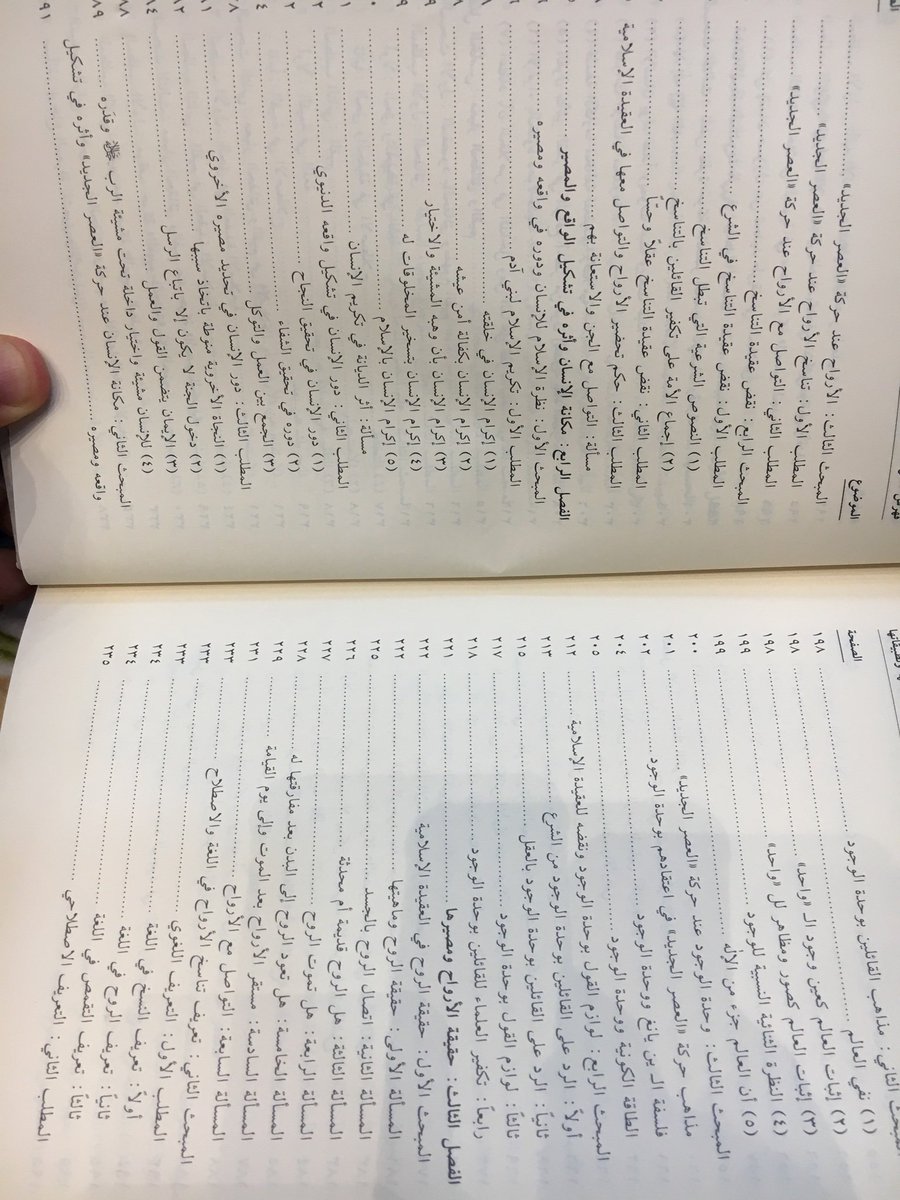 الصفحة
المبحث الثاني: مذاهب القائلين بوحدة الوجود ١٩٨
(١) نفي العالم ١٩٨
(٢) إثبات العالم كعين وجود الـ «واحد» ١٩٨
(٣) إثبات العالم كصور ومظاهر لل «واحد» ١٩٩
(٤) النظرة الثنائية النسبية للوجود ١٩٩
(٥) أن العالم جزء من الإله ٢٠٠
المبحث الثالث: وحدة الوجود عند حركة «العصر الجديد» ٢٠١
مذاهب حركة «العصر الجديد» في اعتقادهم بوحدة الوجود ٢٠٢
فلسفة الـ ين يانغ ووحدة الوجود ٢٠٤
الطاقة الكونية ووحدة الوجود ٢٠٥
المبحث الرابع: لوازم القول بوحدة الوجود ونقضه للعقيدة الإسلامية ٢١٢
أولاً: الرد على القائلين بوحدة الوجود من الشرع ٢١٣
ثانياً: الرد على القائلين بوحدة الوجود بالعقل ٢١٥
ثالثاً: لوازم القول بوحدة الوجود ٢١٧
رابعاً: تكفير العلماء للقائلين بوحدة الوجود ٢١٨
الفصل الثالث: حقيقة الأرواح ومصيرها ٢٢١
المبحث الأول: حقيقة الروح في العقيدة الإسلامية ٢٢٢
المسألة الأولى: حقيقة الروح وماهيتها ٢٢٢
المسألة الثانية: اتصال الروح بالجسد ٢٢٥
المسألة الثالثة: هل الروح قديمة أم محدثة ٢٢٦
المسألة الرابعة: هل تموت الروح ٢٢٧
المسألة الخامسة: هل تعود الروح إلى البدن بعد مفارقتها له ٢٢٨
المسألة السادسة: مستقر الأرواح بعد الموت وإلى يوم القيامة ٢٢٩
المسألة السابعة: التواصل مع الأرواح ٢٣١
المبحث الثاني: تعريف تناسخ الأرواح في اللغة والاصطلاح ٢٣٣
المطلب الأول: التعريف اللغوي ٢٣٣
أولاً: تعريف النسخ في اللغة ٢٣٣
ثانياً: تعريف الروح في اللغة ٢٣٤
ثالثاً: تعريف التقمص في اللغة ٢٣٤
المطلب الثاني: التعريف الاصطلاحي ٢٣٥
الموضوع
المبحث الثالث: الأرواح عند حركة «العصر الجديد»
المطلب الأول: تناسخ الأرواح عند حركة «العصر الجديد»
المطلب الثاني: التواصل مع الأرواح عند حركة «العصر الجديد»
المبحث الرابع: نقض عقيدة التناسخ
المطلب الأول: نقض عقيدة التناسخ في الشرع
(١) النصوص الشرعية التي تبطل التناسخ
(٢) إجماع الأمة على تكفير القائلين بالتناسخ
المطلب الثاني: نقض عقيدة التناسخ عقلاً وحساً
المطلب الثالث: حكم تحضير الأرواح والتواصل معها في العقيدة الإسلامية
مسألة: التواصل مع الجن والاستعانة بهم
الفصل الرابع: مكانة الإنسان وأثره في تشكيل الواقع والمصير
المبحث الأول: نظرة الإسلام للإنسان ودوره في واقعه ومصيره
المطلب الأول: تكريم الإسلام لبني آدم
(١) إكرام الإنسان في خلقته
(٢) إكرام الإنسان بكفالة أمن عيشه
(٣) إكرام الإنسان بأن وهبه المشيئة والاختيار
(٤) إكرام الإنسان بتسخير المخلوقات له
(٥) إكرام الإنسان بالإسلام
مسألة: أثر الديانة في تكريم الإنسان
المطلب الثاني: دور الإنسان في تشكيل واقعه الدنيوي
(١) دور للإنسان في تحقيق النجاح
(٢) دوره في تحقيق الشفاء
(٣) الجمع بين العمل والتوكل
المطلب الثالث: دور الإنسان في تحديد مصيره الأخروي
(١) النجاة الأخروية منوطة باتخاذ سببها
(٢) دخول الجنة لا يكون إلا باتباع الرسل
(٣) الإيمان يتضمن القول والعمل
(٤) للإنسان مشيئة واختيار داخلة تحت مشيئة الرب ﷻ وقدره
المبحث الثاني: مكانة الإنسان عند حركة «العصر الجديد» وأثره في تشكيل
واقعه ومصيره